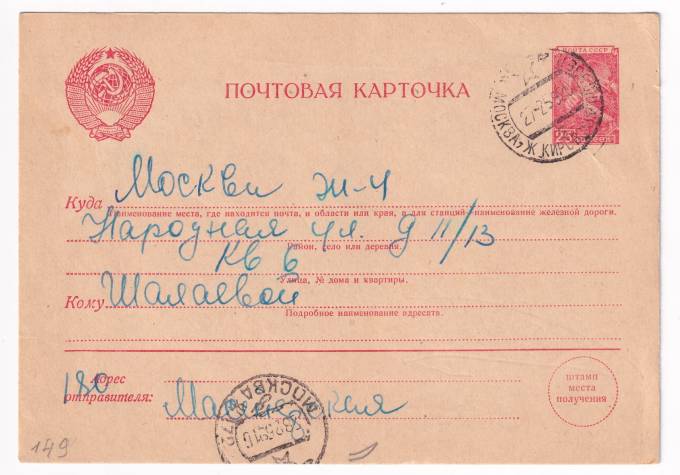 ПОЧТОВАЯ КАРТОЧКА
ПОЧТА СССР
25 КОПЕЕК
МОСКВА, Ж
Куда Москва Ж-4
Наименование места, где находится почта, и области или края, а для станций наименование железной дороги.
Народная ул. д 11/13
Район, село или деревня.
кв 6
Улица, № дома и квартиры.
Кому Шалаевой
Подробное наименование адресата.
180 Адрес
отправителя:
МОСКВА
штамп
места
получения
149